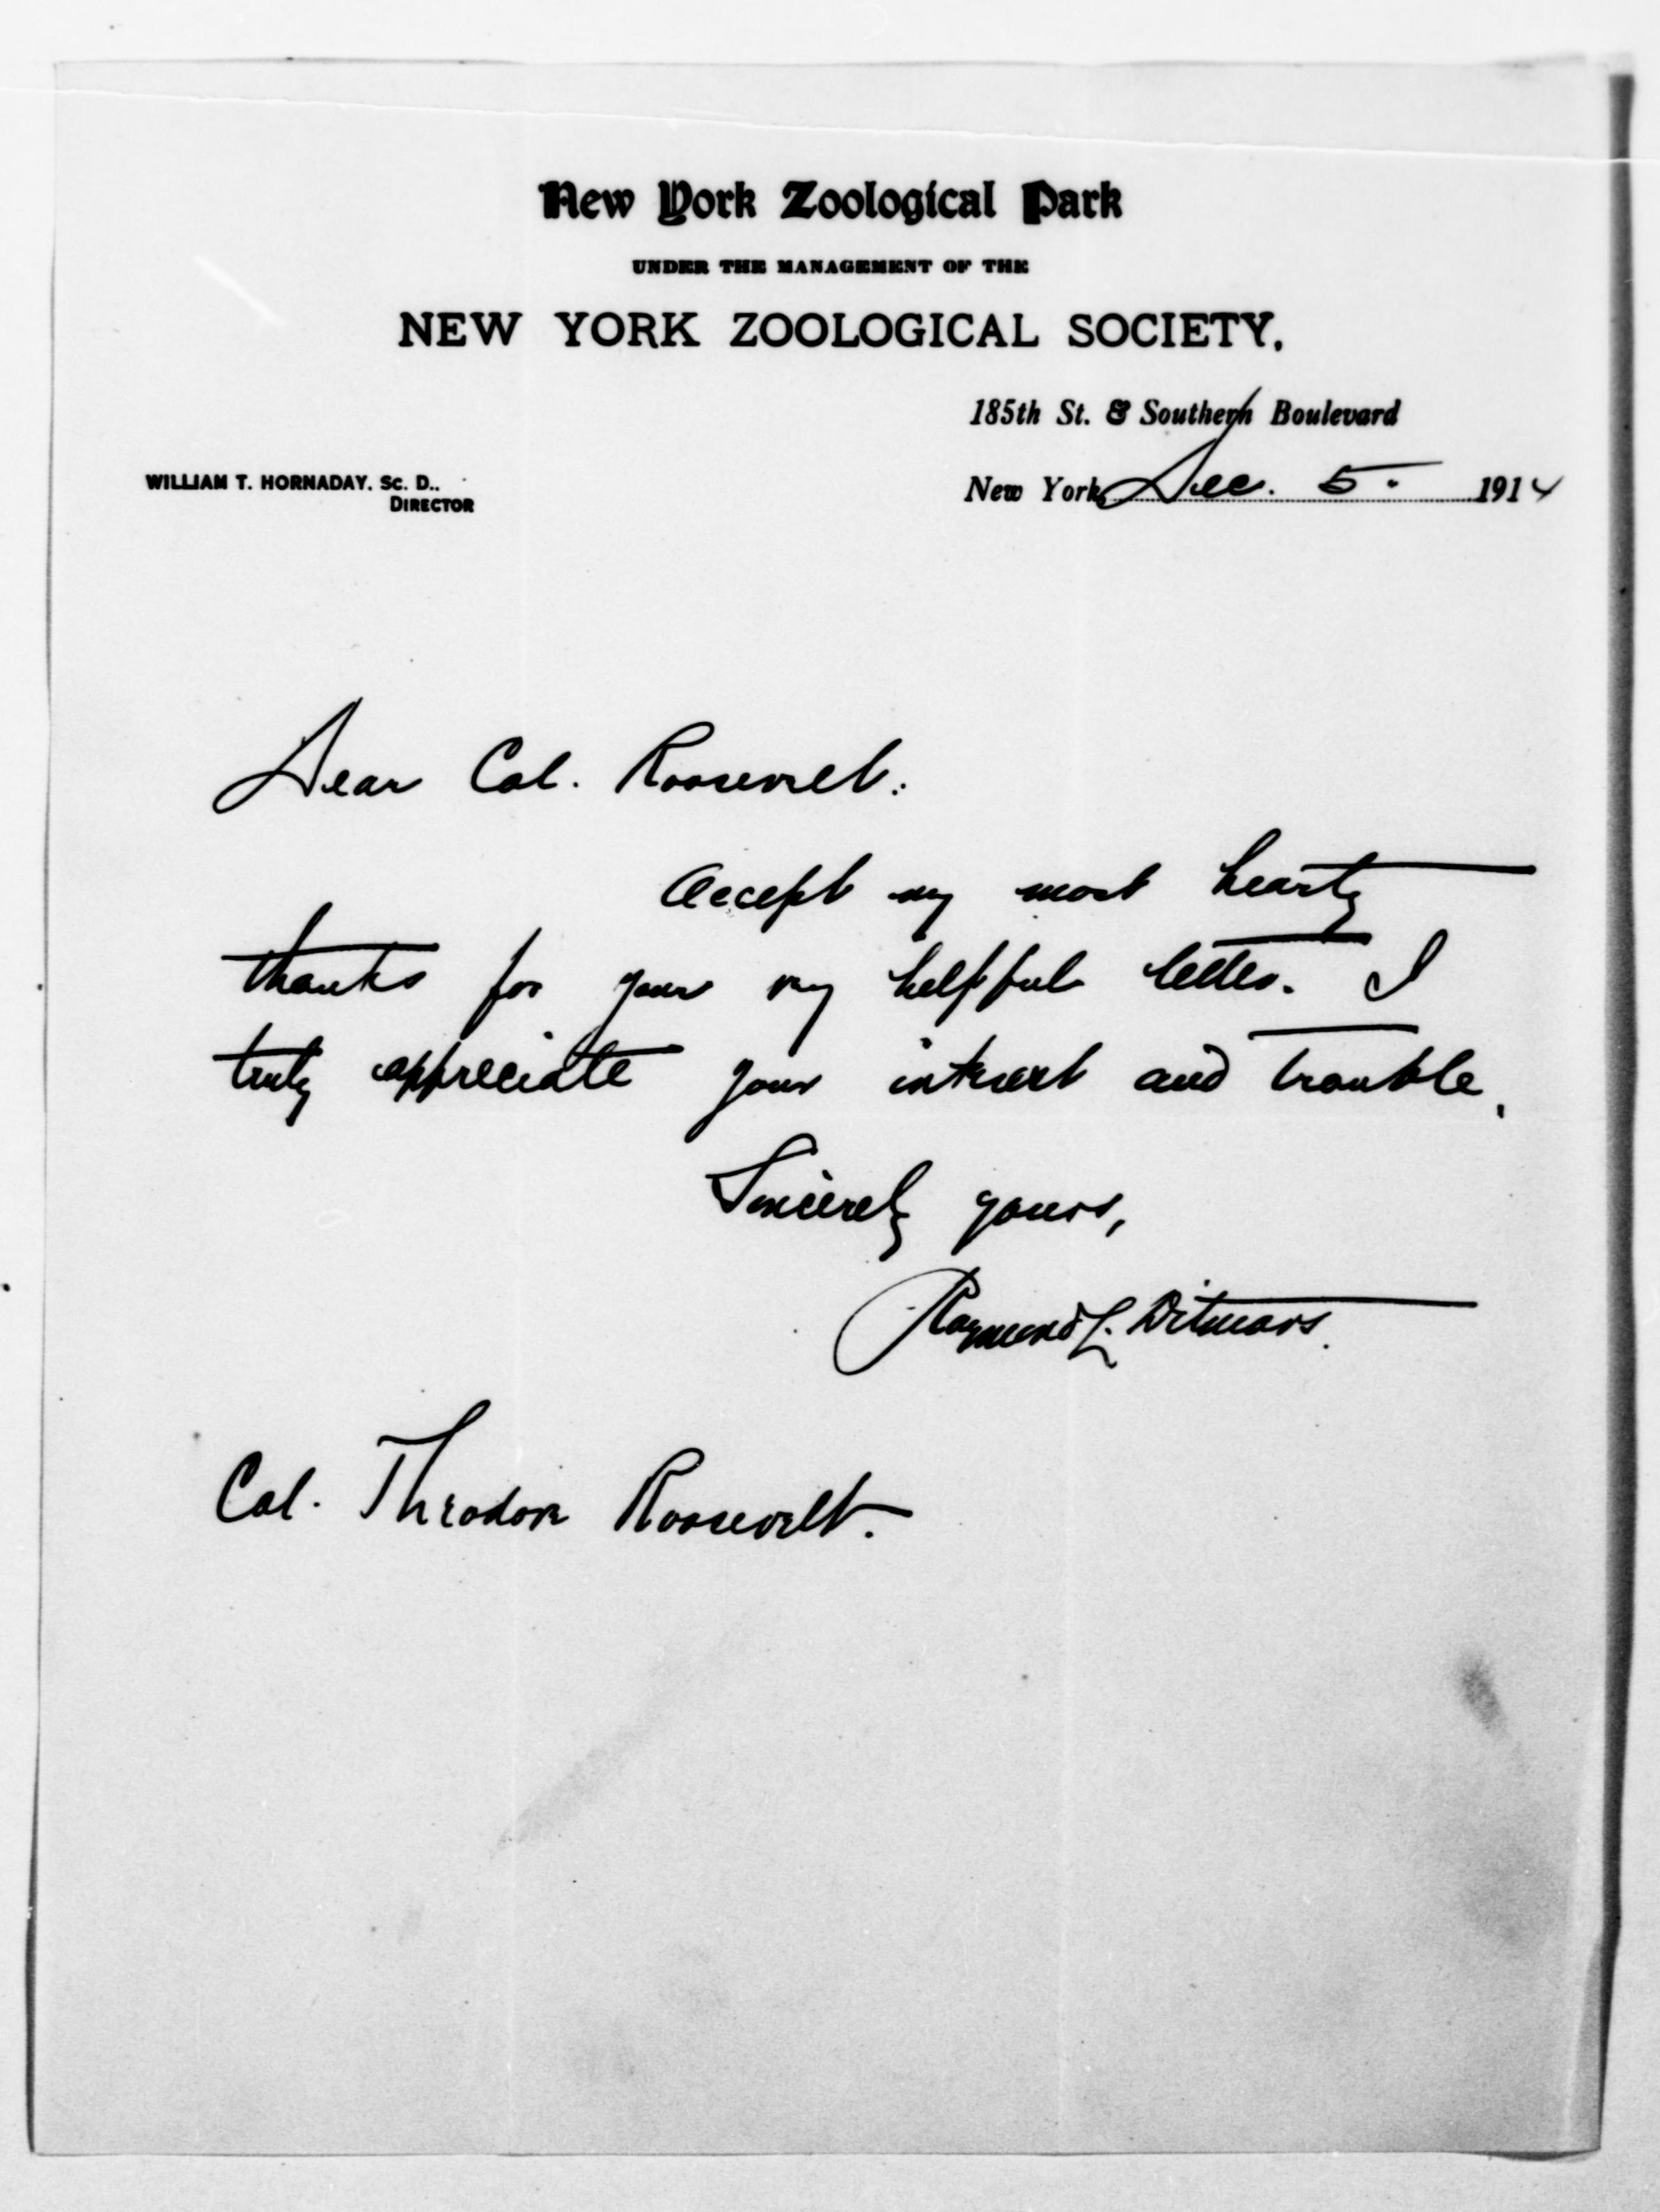 New York Zoological Park
UNDER THE MANAGEMENT OF THE
NEW YORK ZOOLOGICAL SOCIETY.
185th St. & Southern Boulevard
WILLIAM T. HORNADAY. Sc. D..
DIRECTOR
New York, Dec. 5. 1914
Dear Col. Roosevelt:
Accept my most hearty
thanks for your very helpful letter. I
truly appreciate your interest and trouble.
Sincerely yours,
Raymond L. Ditmars.
Col. Theodore Roosevelt.